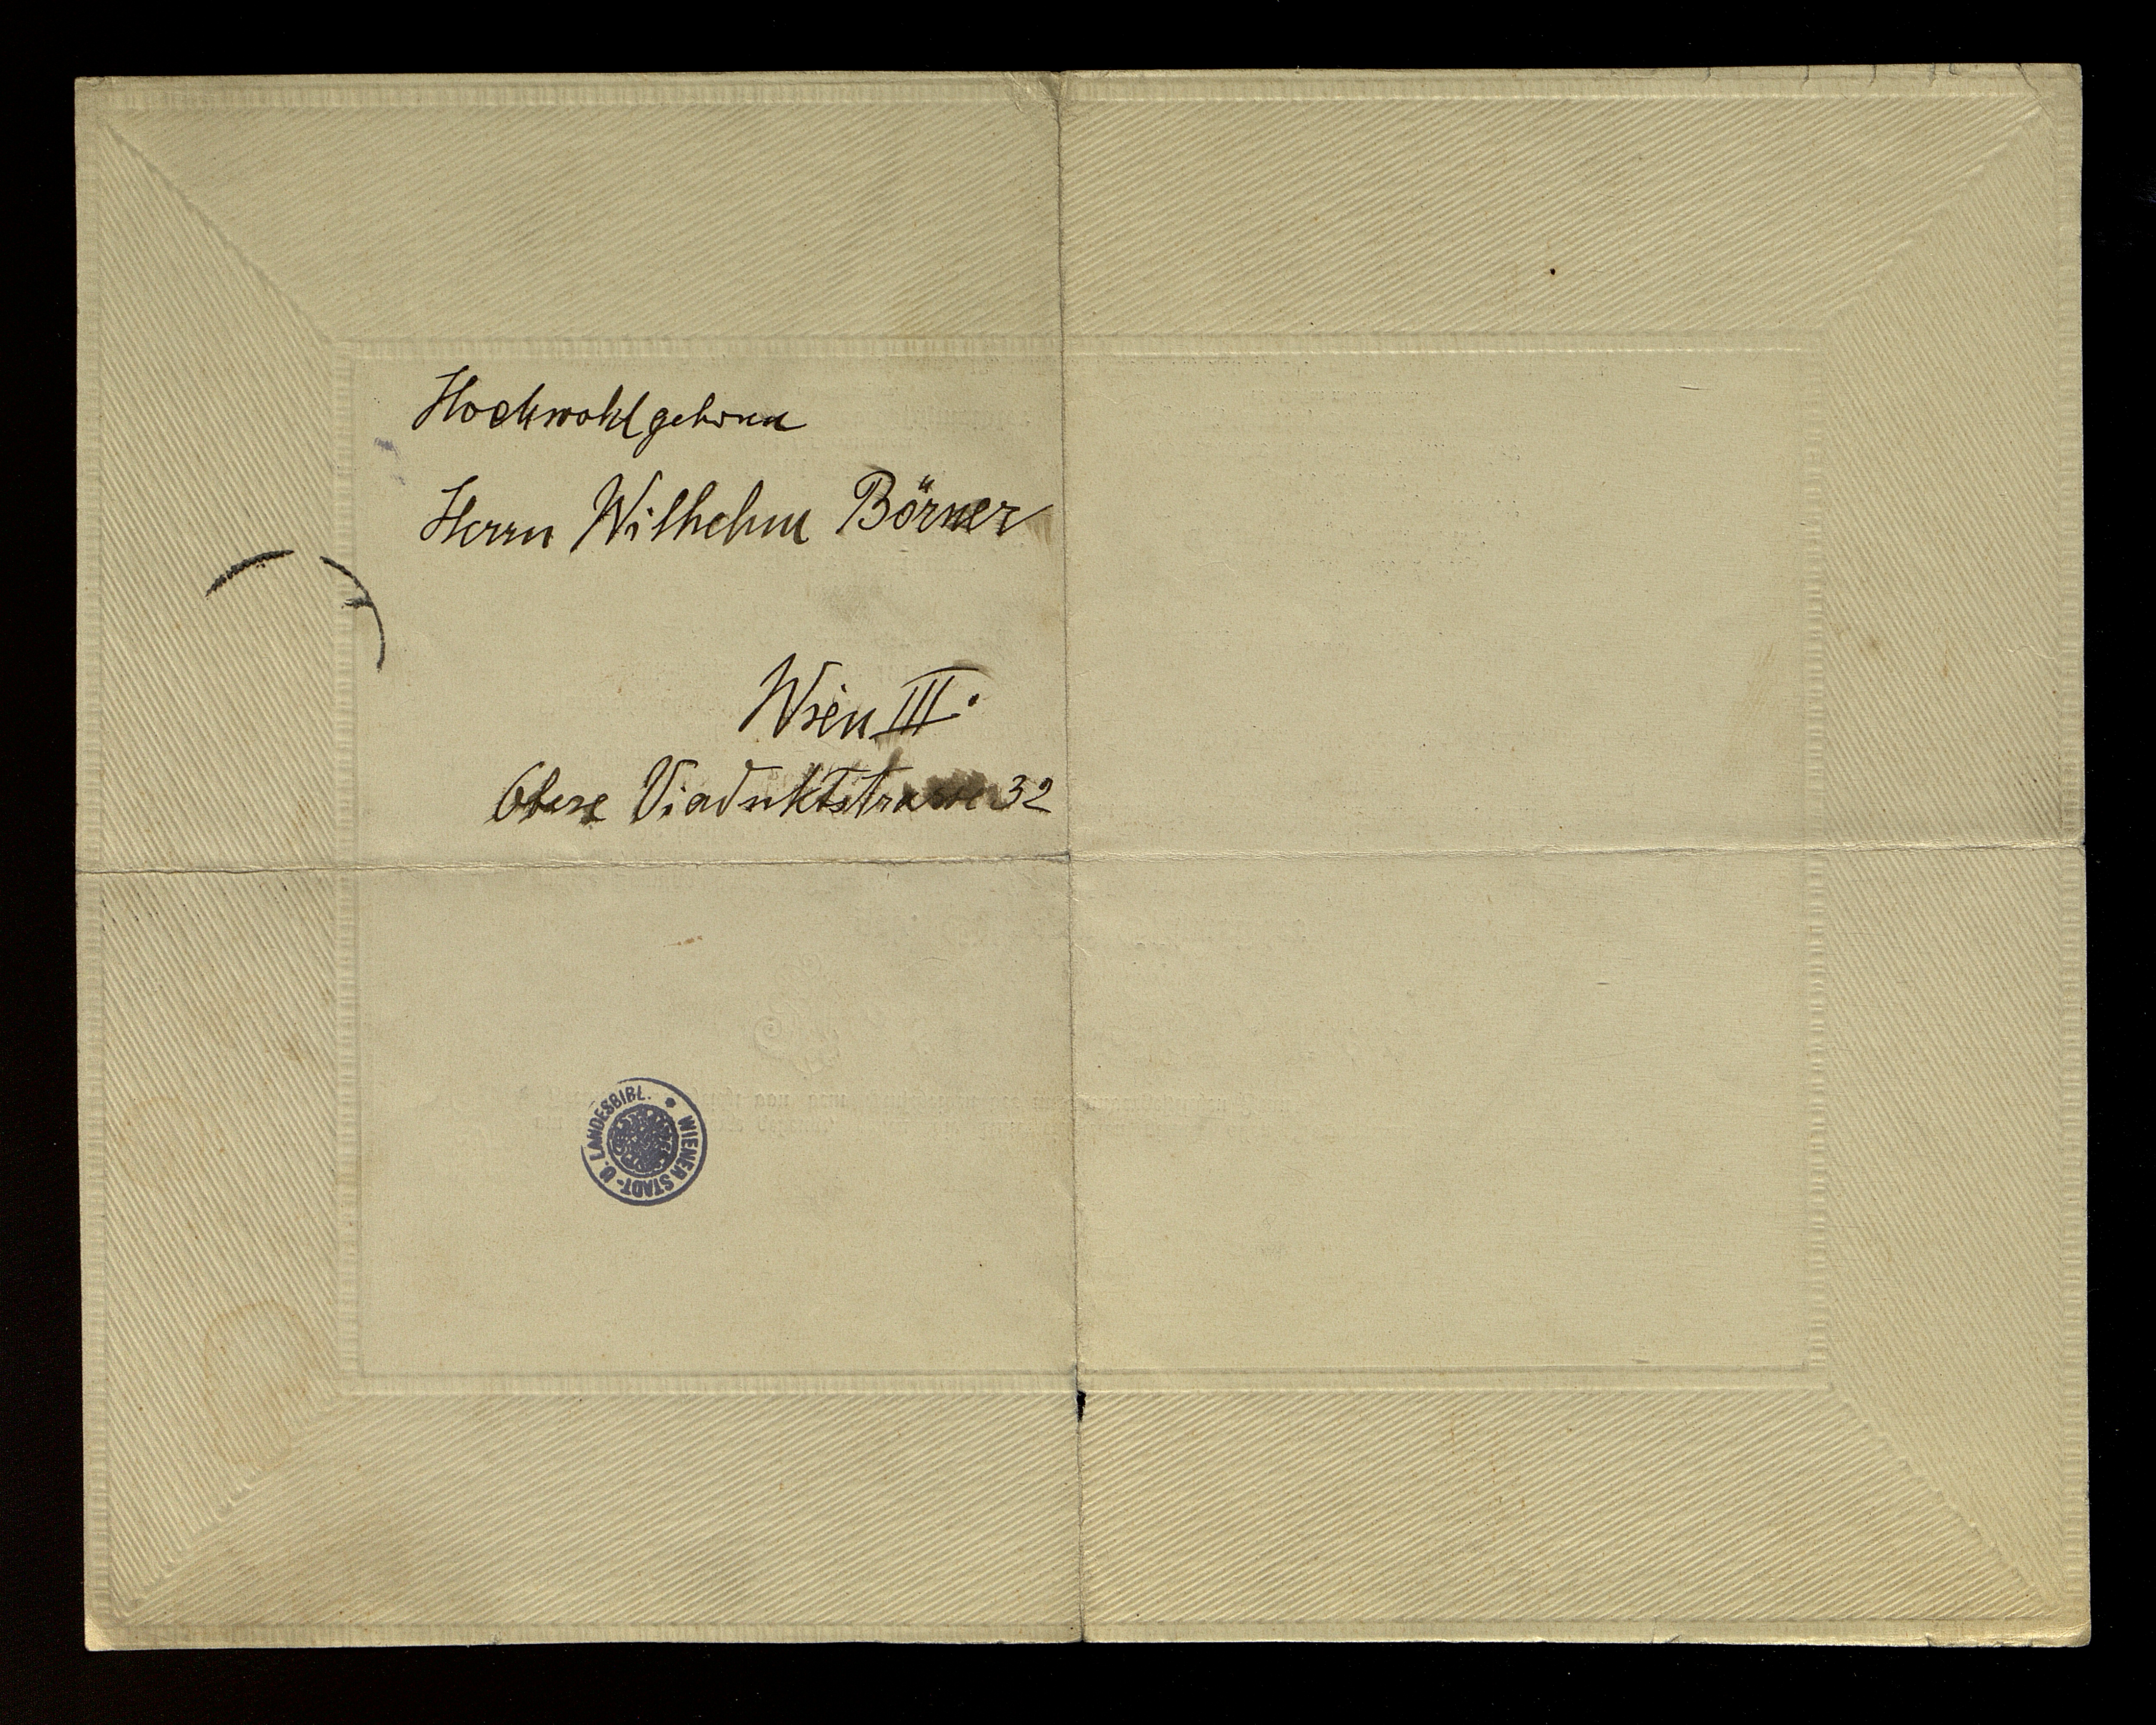 Hochwohlgeboren
Herrn Wilhelm Börner
Wien III.
Obere Viaduktstrasse 32
WIENER STADT- U. LANDESBIBL.